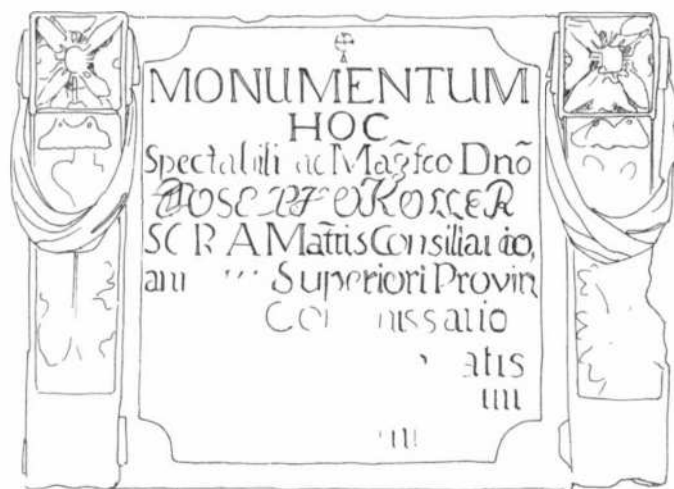 MONUMENTUM
HOC
Spectabili ac Mag̃fco Dnõ
JOSEPHO KOLLER
SCRA Mãttis Consiliario,
Superiori Provin
Commissario
atis